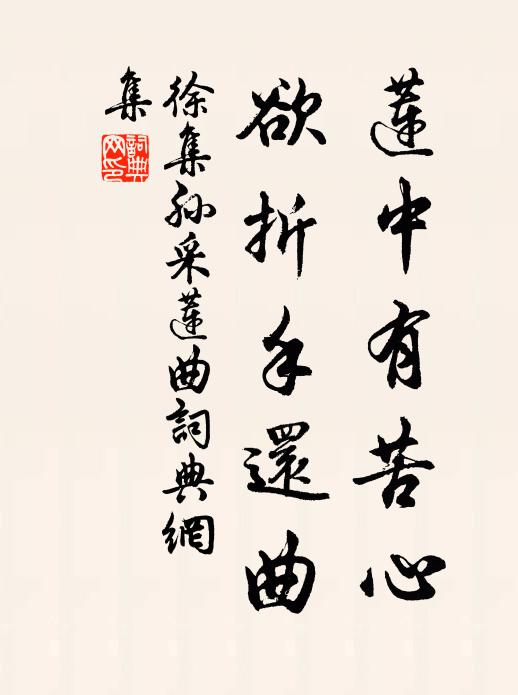 蓮中有苦心
欲折手還曲
徐集孙采蓮曲詞典網
集
詞典
网印